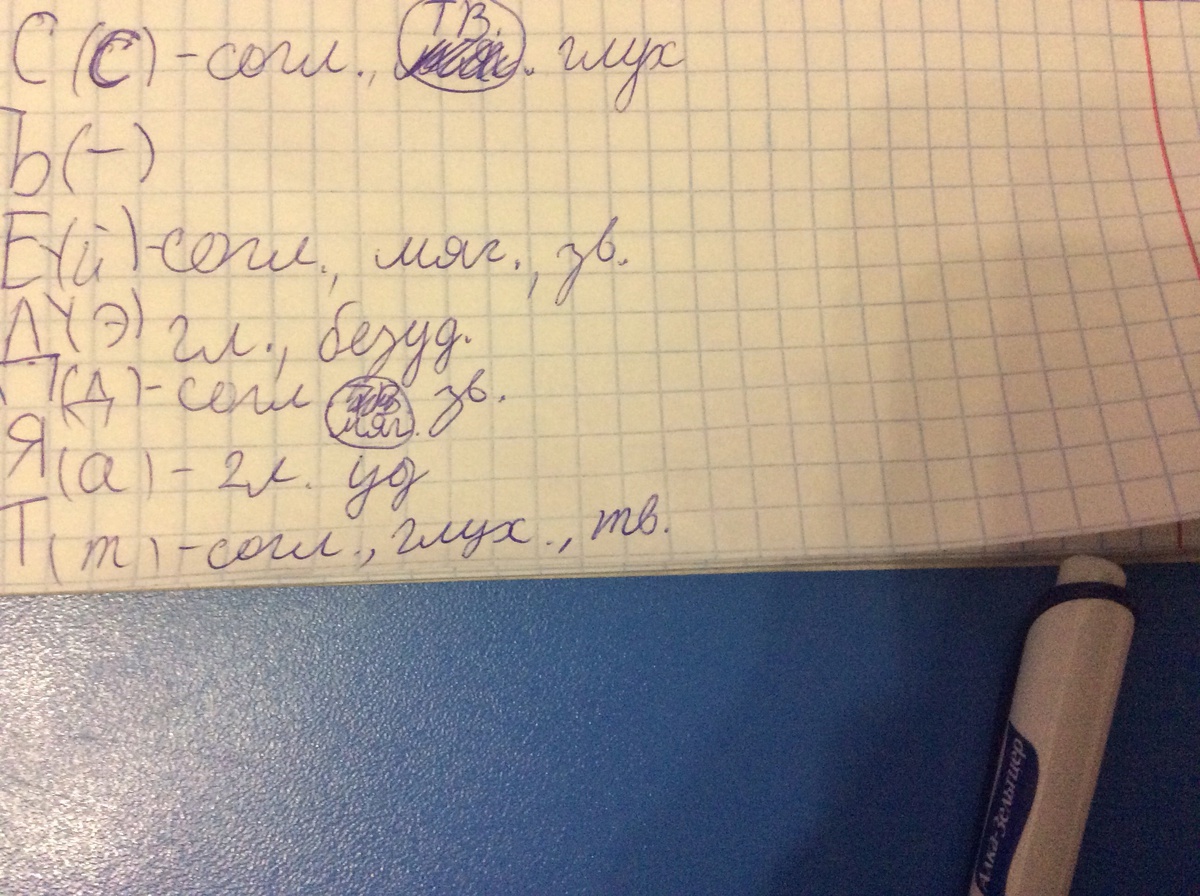 С (с) - согл., тв. глух
Ъ (-)
Е (й) - согл., мяг., зв.
(э) гл., безуд.
Д (д) - согл мяг. зв.
Я (а) - гл. уд
Т (т) - согл., глух., тв.
Алка-Зельтцер